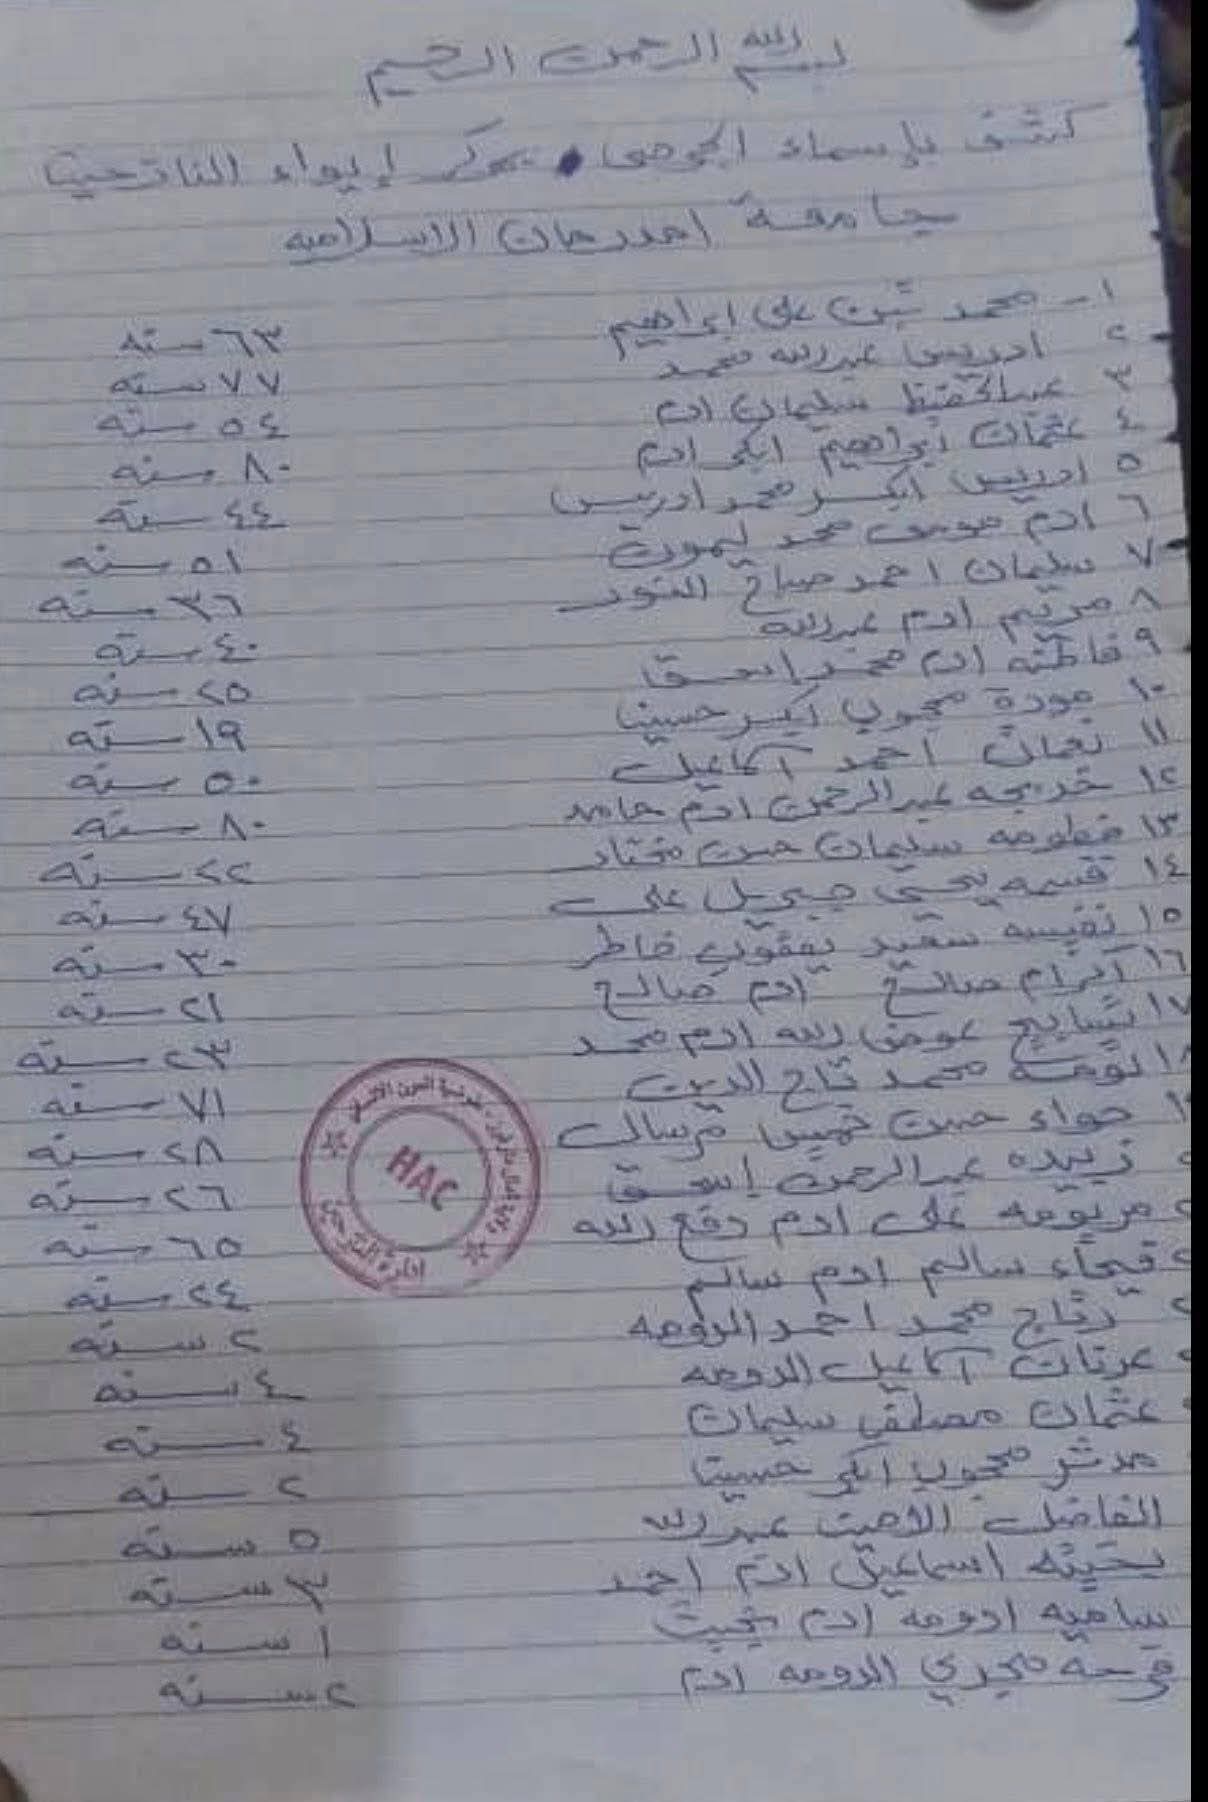 بسم الله الرحمن الرحيم
كشف بإسماء الجرحى بمركز إيواء النازحين
جامعة امدرمان الاسلاميه
١- محمد تبن على ابراهيم ٦٣ سنه
٢ ادريس عبدالله محمد ٧٧ سنه
٣ عبدالحفيظ سليمان ادم ٥٤ سنه
٤ عثمان ابراهيم ابكر ادم ٨٠ سنه
٥ ادريس ابكر محمد ادريس ٤٤ سنه
٦ ادم موسى محمد ٥١ سنه
٧ سليمان احمد صباح النور ٣٦ سنه
٨ مريم ادم عبدالله ٤٠ سنه
٩ فاطمه ادم محمد إسحق ٢٥ سنه
١٠ مودة محجوب ابكر حسينا ١٩ سنه
١١ نعمان احمد اسماعيل ٥٠ سنه
١٢ خديجه عبدالرحمن ادم حامد ٨٠ سنه
١٣ فطومه سليمان حسن مختار ٢٢ سنه
١٤ قسمه يحيى جبريل على ٤٧ سنه
١٥ نفيسه سعيد يعقوب خاطر ٣٠ سنه
١٦ اكرام صالح ادم صالح ٢١ سنه
١٧ تسابيح عوض الله ادم محمد ٢٣ سنه
١٨ محمد تاج الدين ٧١ سنه
حواء حسن خميس مرسال ٢٨ سنه
زبيده عبدالرحمن إسحق ٢٦ سنه
مريومه على ادم دفع الله ٦٥ سنه
فيحاء سالم ادم سالم ٢٤ سنه
رتاج محمد احمد الدومه ٢ سنه
عرفان اسماعيل الدومه ٤ سنه
عثمان مصطفى سليمان ٤ سنه
مدثر محجوب ابكر حسينا ٢ سنه
الفاضل الامين عبدالله ٥ سنه
بخيته اسماعيل ادم احمد ٣ سنه
ساميه ادومه ادم بخيت ١ سنه
فرحه مجدي الدومه ادم ٢ سنه
HAC
إدارة النازحين